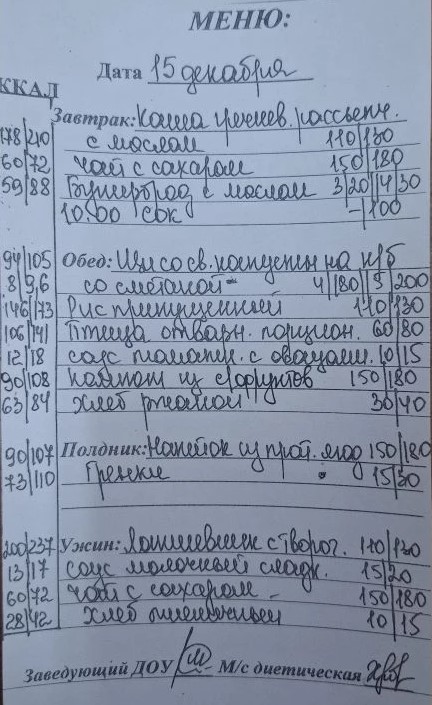 МЕНЮ:
Дата 15 декабря
ККАЛ
Завтрак: Каша гречнев. рассыпч.
178/210 с маслом 110/130
60/72 Чай с сахаром 150/180
59/88 Бутерброд с маслом 3/20/4/30
10.00 Сок -/100
94/105 Обед: Щи со св. капусты на к/б
8/9,6 со сметаной 4/180/5/200
146/173 Рис припущенный 110/130
106/141 Птица отварн. порцион. 60/80
12/18 соус томатн. с овощами 10/15
90/108 Компот из с/фруктов 150/180
63/84 Хлеб ржаной 30/40
90/107 Полдник: Напиток из 150/180
73/110 Гренки 15/30
200/237 Ужин: Лапшевник с творог. 110/130
13/17 Соус молочный сладк. 15/20
60/72 Чай с сахаром 150/180
28/42 Хлеб пшеничный 10/15
Заведующий ДОУ М/с диетическая